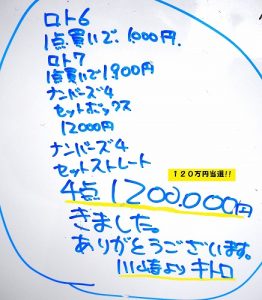 ロト6
1点買いで、1,000円、
ロト7
1点買いで1,900円
ナンバーズ4
セットボックス
12,000円
ナンバーズ4
セットストレート
120万円当選!!
4点 1200,000円
きました。
ありがとうございます。
川崎より キトロ